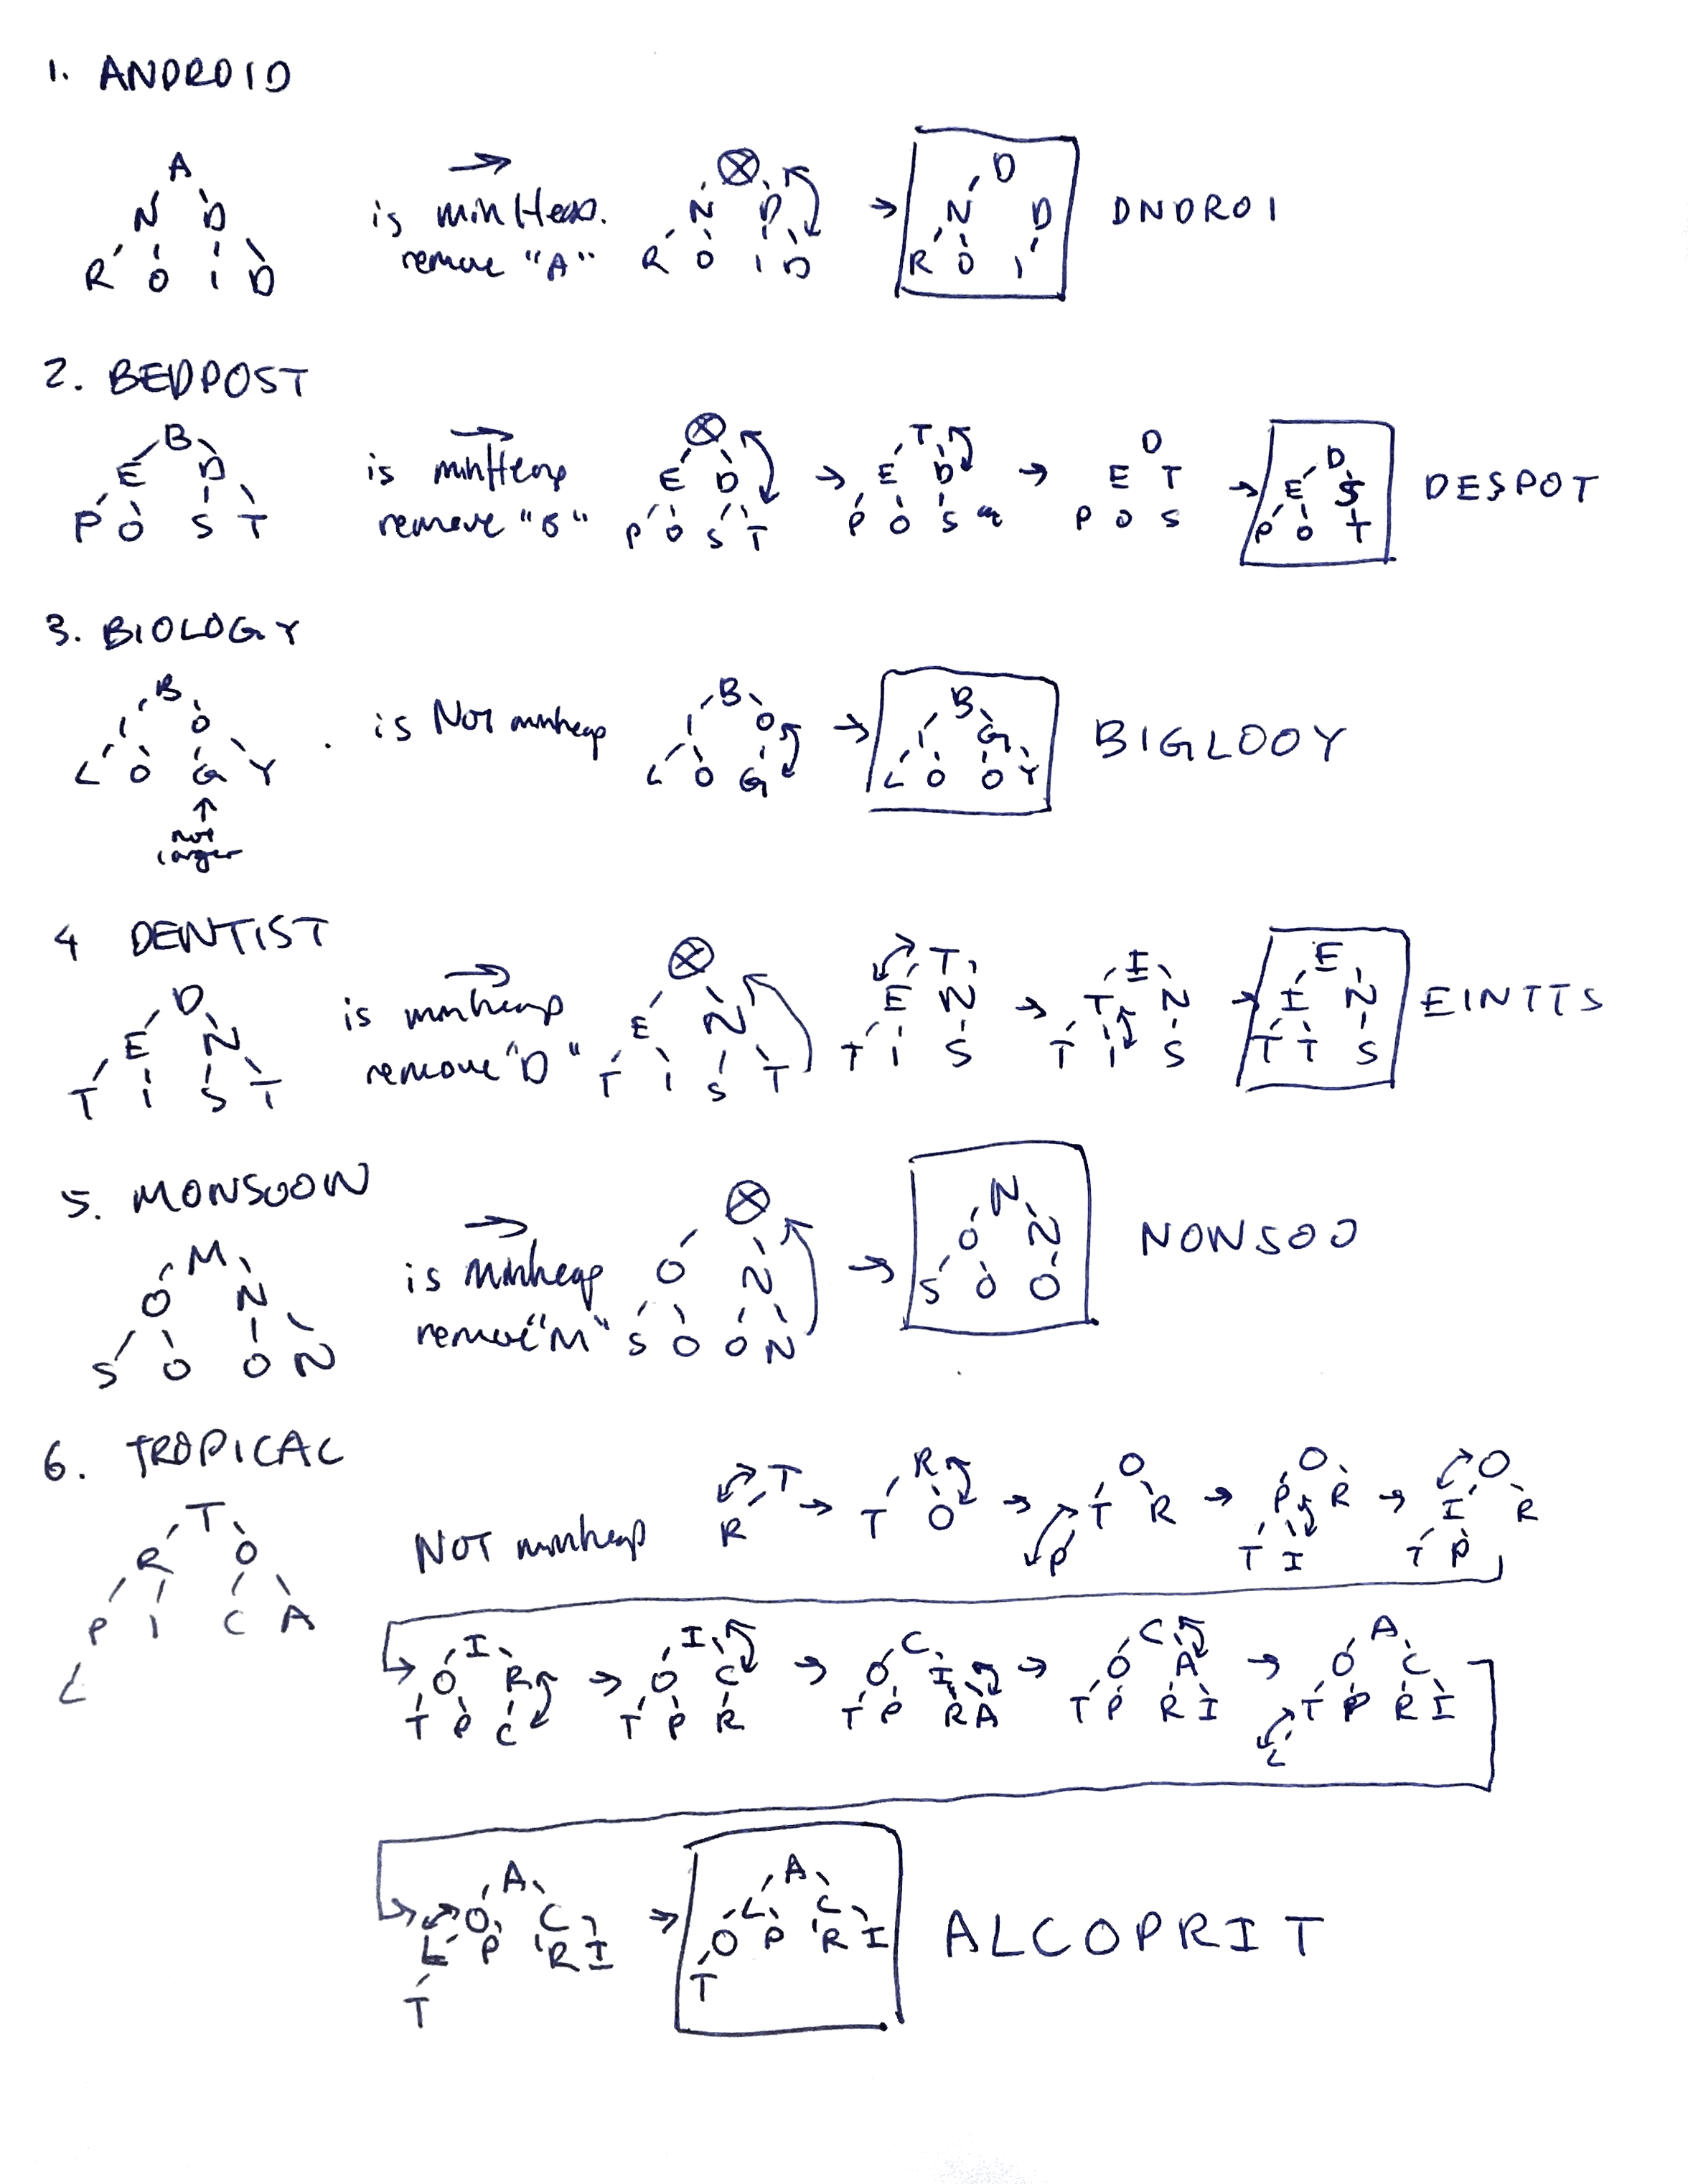 1. ANDROID
A
N D
R O I D
is minHeap.
remove "A"
⊗
N D
R O I D
D
N D
R O I
DNDROI
2. BEDPOST
B
E D
P O S T
is minHeap
remove "B"
⊗
E D
P O S T
T
E D
P O S
D
E T
P O S
D
E S
P O T
DESPOT
3. BIOLOGY
B
I O
L O G Y
not
larger
is NOT minheap
B
I O
L O G
B
I G
L O O Y
BIGLOOY
4 DENTIST
D
E N
T I S T
is minheap
remove "D"
⊗
E N
T I S T
T
E N
T I S
E
T N
T I S
E
I N
T T S
EINTTS
5. MONSOON
M
O N
S O O N
is minheap
remove "M"
⊗
O N
S O O N
N
O N
S O O
NONSOO
6. TROPICAL
T
R O
P I C A
L
NOT minheap
T
R
R
T O
O
T R
P
O
P R
T I
O
I R
T P
I
O R
T P C
I
O C
T P R
C
O I
T P R A
C
O A
T P R I
A
O C
T P R I
L
A
O C
L P R I
T
A
L C
O P R I
T
ALCOPRIT